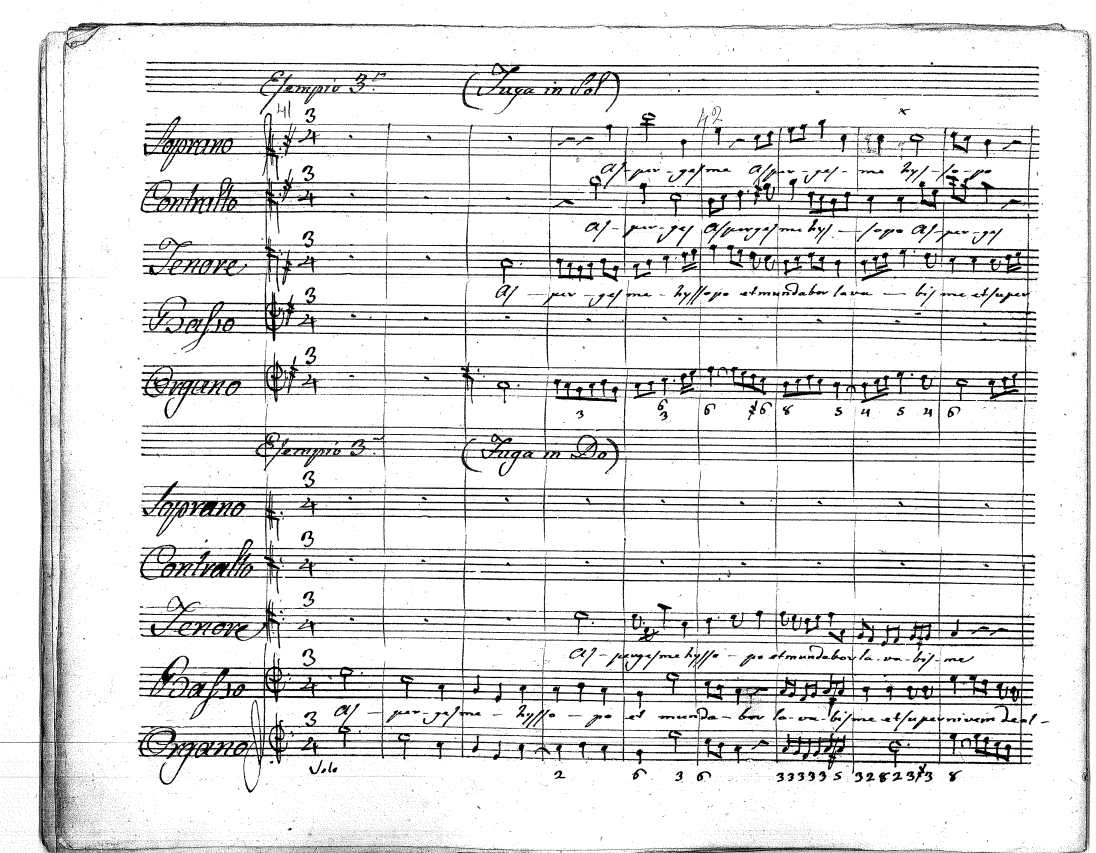 Esempio 3º (Fuga in Sol)
41 42
Soprano 3/4
As-per-ges me Asper-ges-me hys-so-po
Contralto 3/4
As-per-ges Asperges me hys-sopo As-per-ges
Tenore 3/4
As-per-ges me-hyssopo et mundabor lava-bis me et super
Basso 3/4
Organo 3/4
3 6 3 6 6 8 5 4 5 4 6
Esempio 3º (Fuga in Do)
Soprano 3/4
Contralto 3/4
Tenore 3/4
As-perges me hysso-po et mundabor la-va-bis-me
Basso 3/4
As-per-ges me-hysso-po et munda-bor la-va-bis me et super nivem deal-
Organo 3/4
Solo 2 6 3 6 3 3 3 3 3 5 3 2 8 2 3 3 8